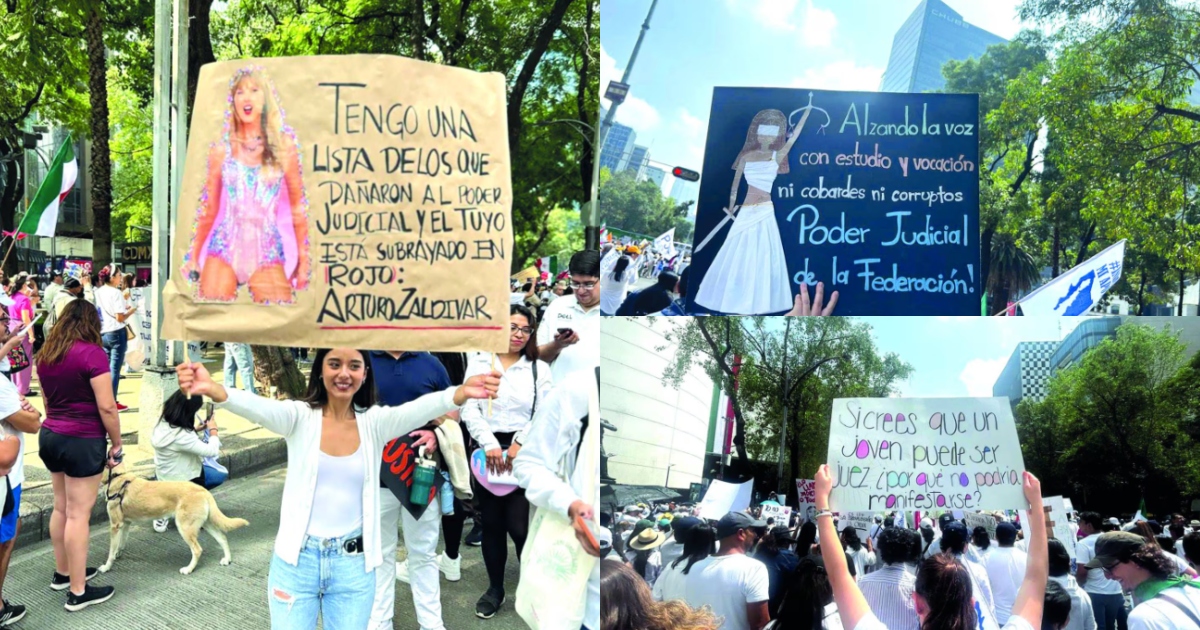 TENGO UNA
LISTA DE LOS QUE
DAÑARON AL PODER
JUDICIAL Y EL TUYO
ESTÁ SUBRAYADO EN
ROJO:
ARTURO ZALDIVAR
CDMX
Alzando la voz
con estudio y vocación
ni cobardes ni corruptos
Poder Judicial
de la Federación!
CHUBB
Si crees que un
joven puede ser
juez ¿por qué no podría
manifestarse?